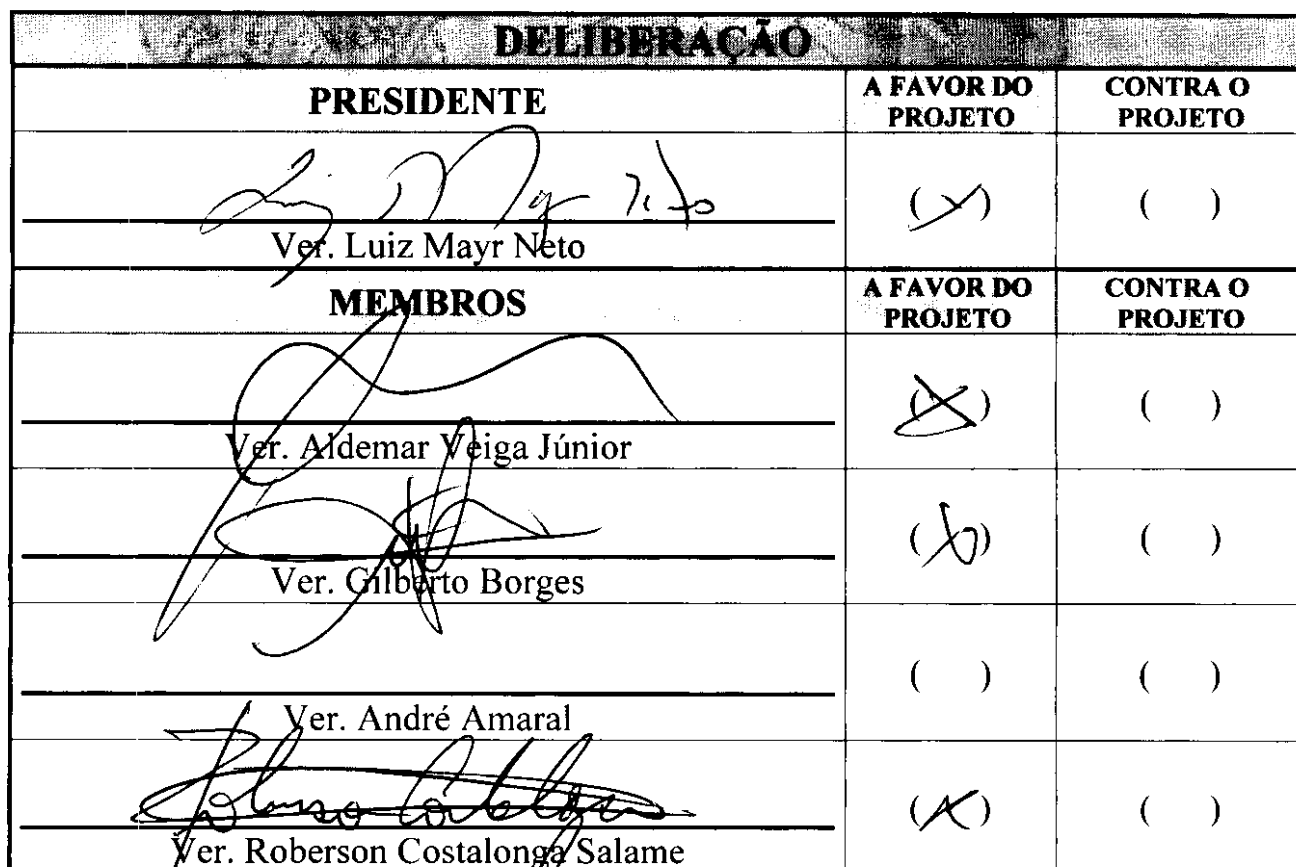 DELIBERAÇÃO
PRESIDENTE A FAVOR DO PROJETO CONTRA O PROJETO
( ) ( )
Ver. Luiz Mayr Neto
MEMBROS A FAVOR DO PROJETO CONTRA O PROJETO
(X) ( )
Ver. Aldemar Veiga Júnior
(X) ( )
Ver. Gilberto Borges
( ) ( )
Ver. André Amaral
(X) ( )
Ver. Roberson Costalonga Salame